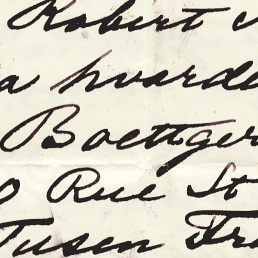 Robert
a hvarde
Boettger
Rue St
Tusen Fra